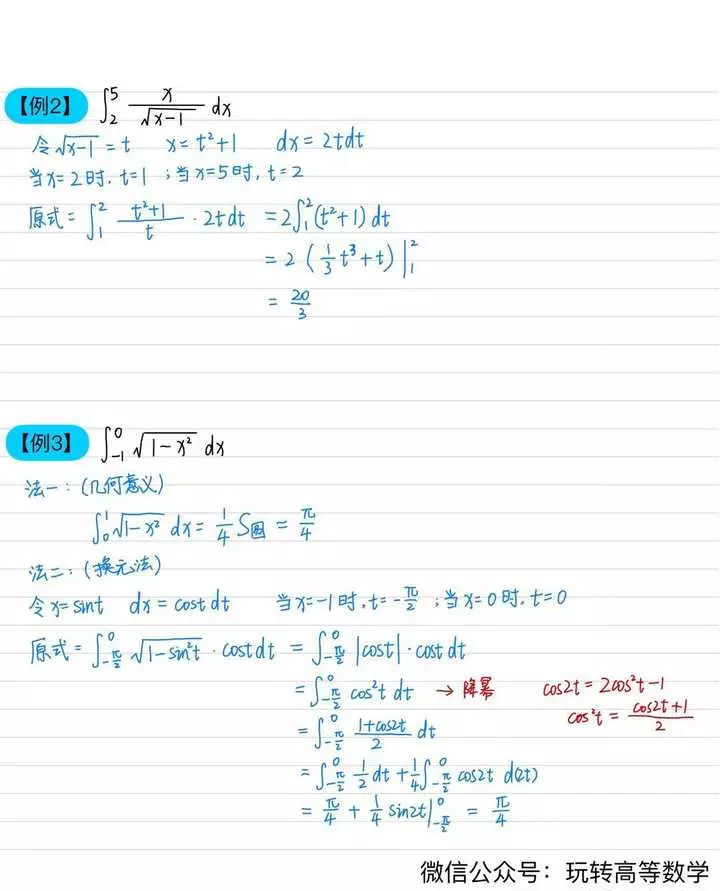 【例2】 ∫₂⁵ x/√(x-1) dx
令√(x-1) = t   x = t²+1   dx = 2tdt
当x=2时, t=1 ; 当x=5时, t=2
原式 = ∫₁² (t²+1)/t · 2tdt = 2∫₁²(t²+1) dt
= 2 (1/3 t³+t) |₁²
= 20/3
【例3】 ∫₋₁⁰ √(1-x²) dx
法一: (几何意义)
∫₀¹ √(1-x²) dx = 1/4 S圆 = π/4
法二: (换元法)
令x=sint   dx = costdt   当x=-1时, t=-π/2 ; 当x=0时, t=0
原式 = ∫_{-π/2}^0 √(1-sin²t) · costdt = ∫_{-π/2}^0 |cost| · cost dt
= ∫_{-π/2}^0 cos²t dt → 降幂   cos2t = 2cos²t-1
cos²t = (cos2t+1)/2
= ∫_{-π/2}^0 (1+cos2t)/2 dt
= ∫_{-π/2}^0 1/2 dt + 1/4 ∫_{-π/2}^0 cos2t d(2t)
= π/4 + 1/4 sin2t |_{-π/2}^0 = π/4
微信公众号：玩转高等数学